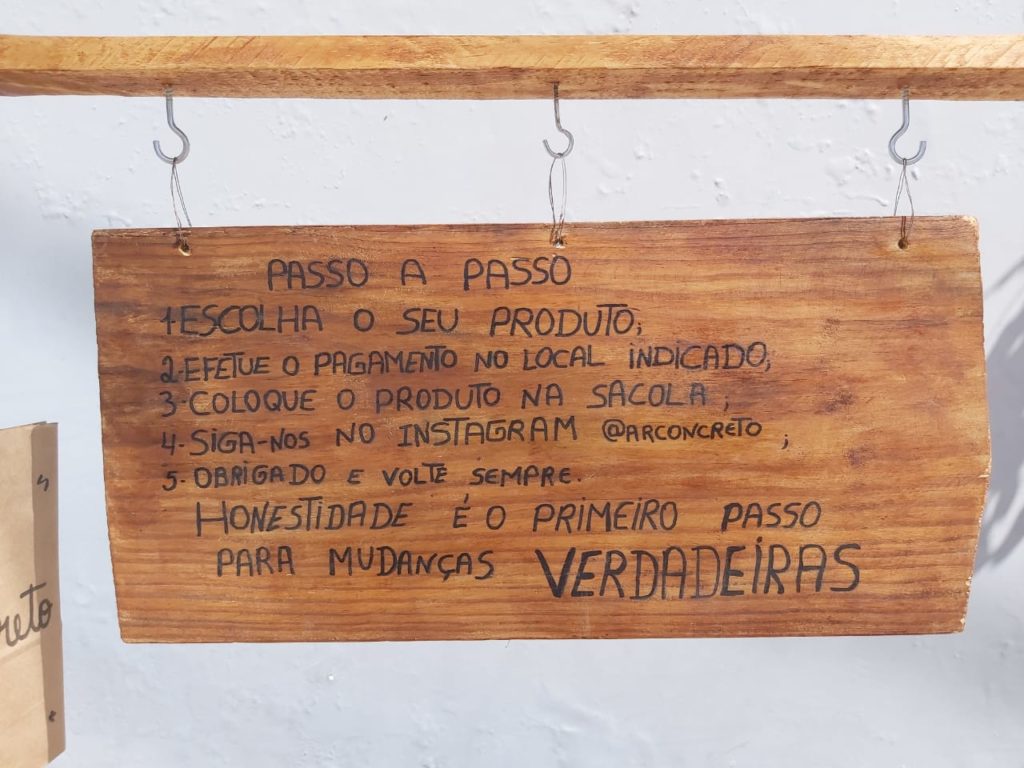 PASSO A PASSO
1-ESCOLHA O SEU PRODUTO;
2-EFETUE O PAGAMENTO NO LOCAL INDICADO;
3-COLOQUE O PRODUTO NA SACOLA;
4-SIGA-NOS NO INSTAGRAM @ARCONCRETO;
5-OBRIGADO E VOLTE SEMPRE.
HONESTIDADE É O PRIMEIRO PASSO
PARA MUDANÇAS VERDADEIRAS